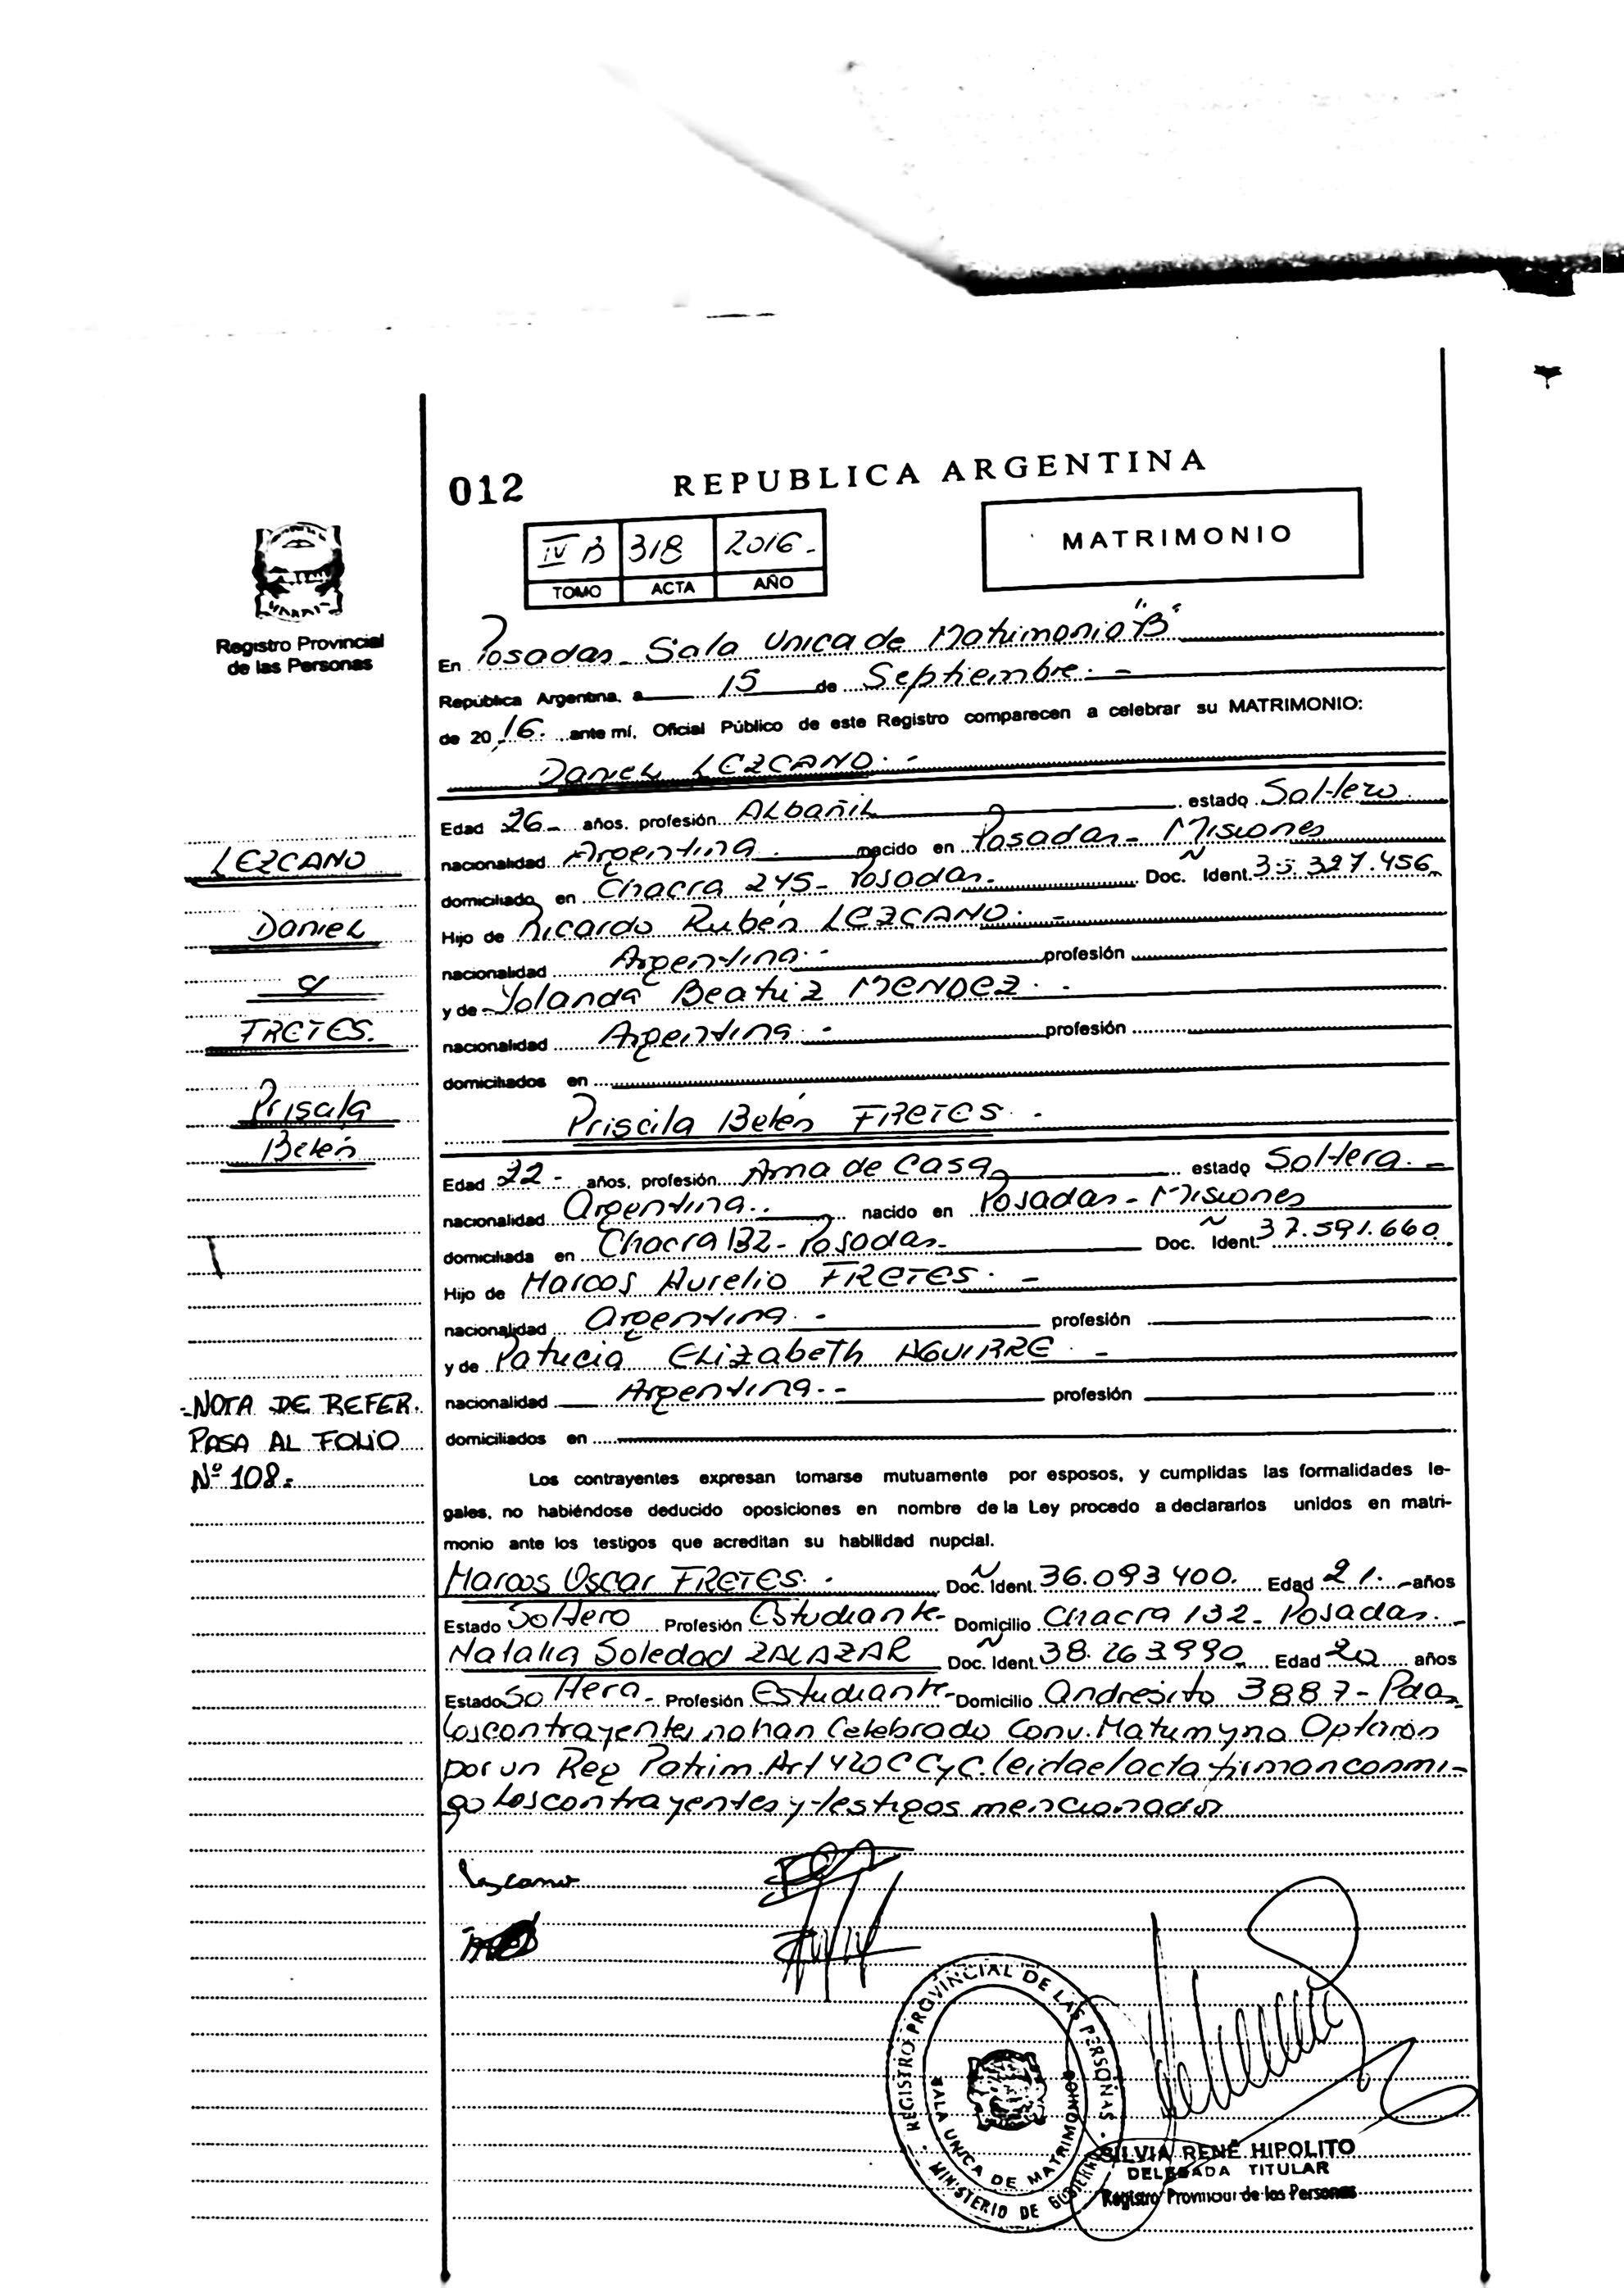 012
REPUBLICA ARGENTINA
IV B 318 2016.-
TOMO ACTA AÑO
MATRIMONIO
Registro Provincial
de las Personas
En Posadas - Sala Unica de Matrimonio "B"
República Argentina, a 15 de Septiembre.-
de 2016. ante mí, Oficial Público de este Registro comparecen a celebrar su MATRIMONIO:
Daniel LEZCANO.-
Edad 26- años, profesión Albañil estado Soltero
nacionalidad Argentina. nacido en Posadas - Misiones
domiciliado en Chacra 245- Posadas. Doc. Ident. 35.327.456.
Hijo de Ricardo Rubén LEZCANO.-
nacionalidad Argentina.- profesión
y de Yolanda Beatriz MENDEZ.-
nacionalidad Argentina.- profesión
domiciliados en
Priscila Belén FRETES.-
Edad 22- años, profesión Ama de Casa estado Soltera.-
nacionalidad Argentina.. nacido en Posadas - Misiones
domiciliada en Chacra 132- Posadas- Doc. Ident. 37.591.660.
Hijo de Marcos Aurelio FRETES.-
nacionalidad Argentina.- profesión
y de Patricia Elizabeth AGUIRRE.-
nacionalidad Argentina.- profesión
domiciliados en
LEZCANO
Daniel
c/
FRETES.
Priscila
Belén
-NOTA DE REFER.
PASA AL FOLIO
Nº 108.-
Los contrayentes expresan tomarse mutuamente por esposos, y cumplidas las formalidades le-
gales, no habiéndose deducido oposiciones en nombre de la Ley procedo a declararlos unidos en matri-
monio ante los testigos que acreditan su habilidad nupcial.
Marcos Oscar FRETES.- Doc. Ident. 36.093.400. Edad 21.- años
Estado Soltero Profesión Estudiante- Domicilio Chacra 132- Posadas.-
Natalia Soledad ZALAZAR Doc. Ident. 38.263.990. Edad 20 años
Estado Soltera- Profesión Estudiante- Domicilio Andresito 3887- Pdas
Los contrayentes no han Celebrado Conv. Matrim y no Optaron
por un Reg Patrim. Art 420 CCyC. leida el acta firman conmi-
go Los contrayentes y testigos mencionados
Lezcano
REGISTRO PROVINCIAL DE LAS PERSONAS
MINISTERIO DE GOBIERNO
SALA UNICA DE MATRIMONIO
SILVIA RENÉ HIPOLITO
DELEGADA TITULAR
Registro Provincial de las Personas